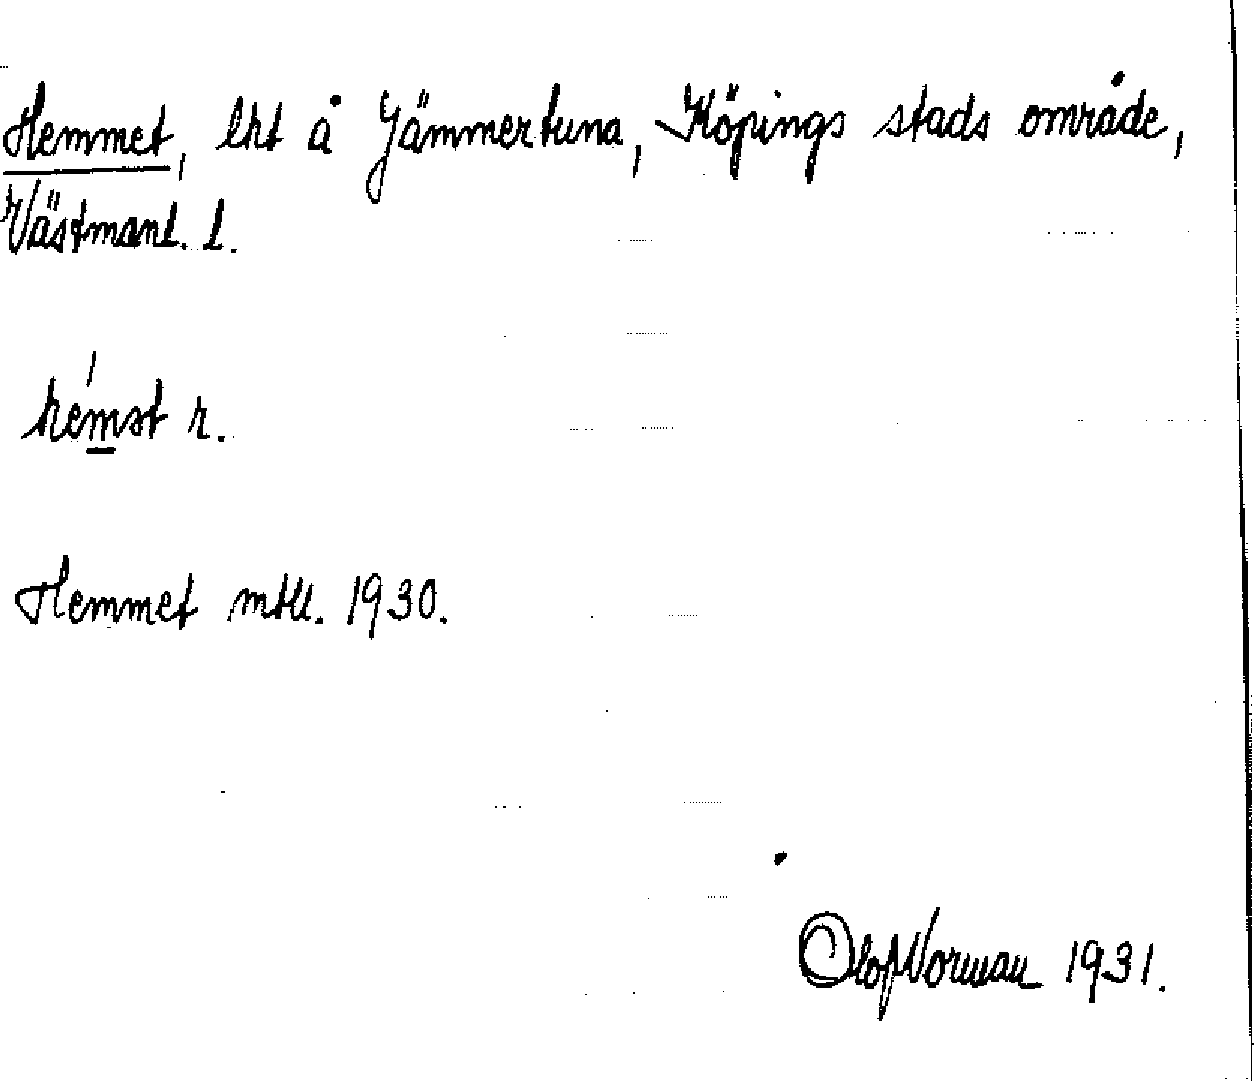 Hemmet, lht å Jämmertuna, Köpings stads område,
Västmanl. l.
hemst r.
Hemmet mtll. 1930.
Olof Norman 1931.